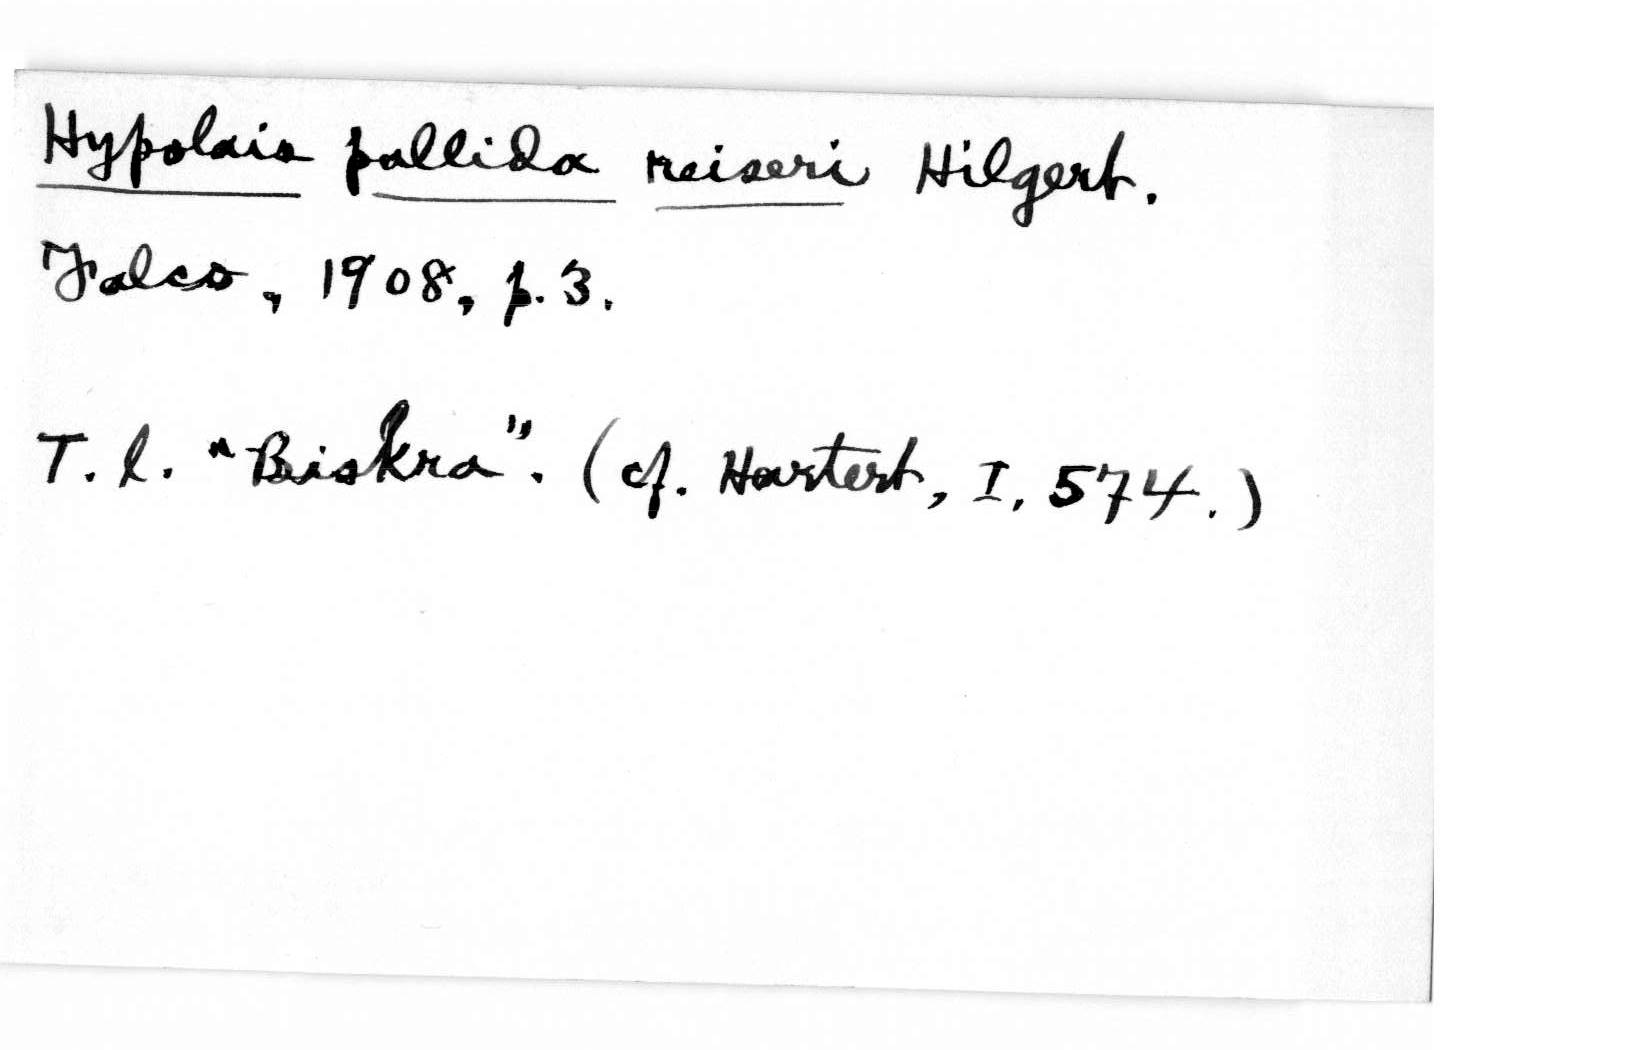 Hypolais pallida reiseri Hilgert.
Falco, 1908, p. 3.
T. l. "Biskra". (cf. Hartert, I, 574.)